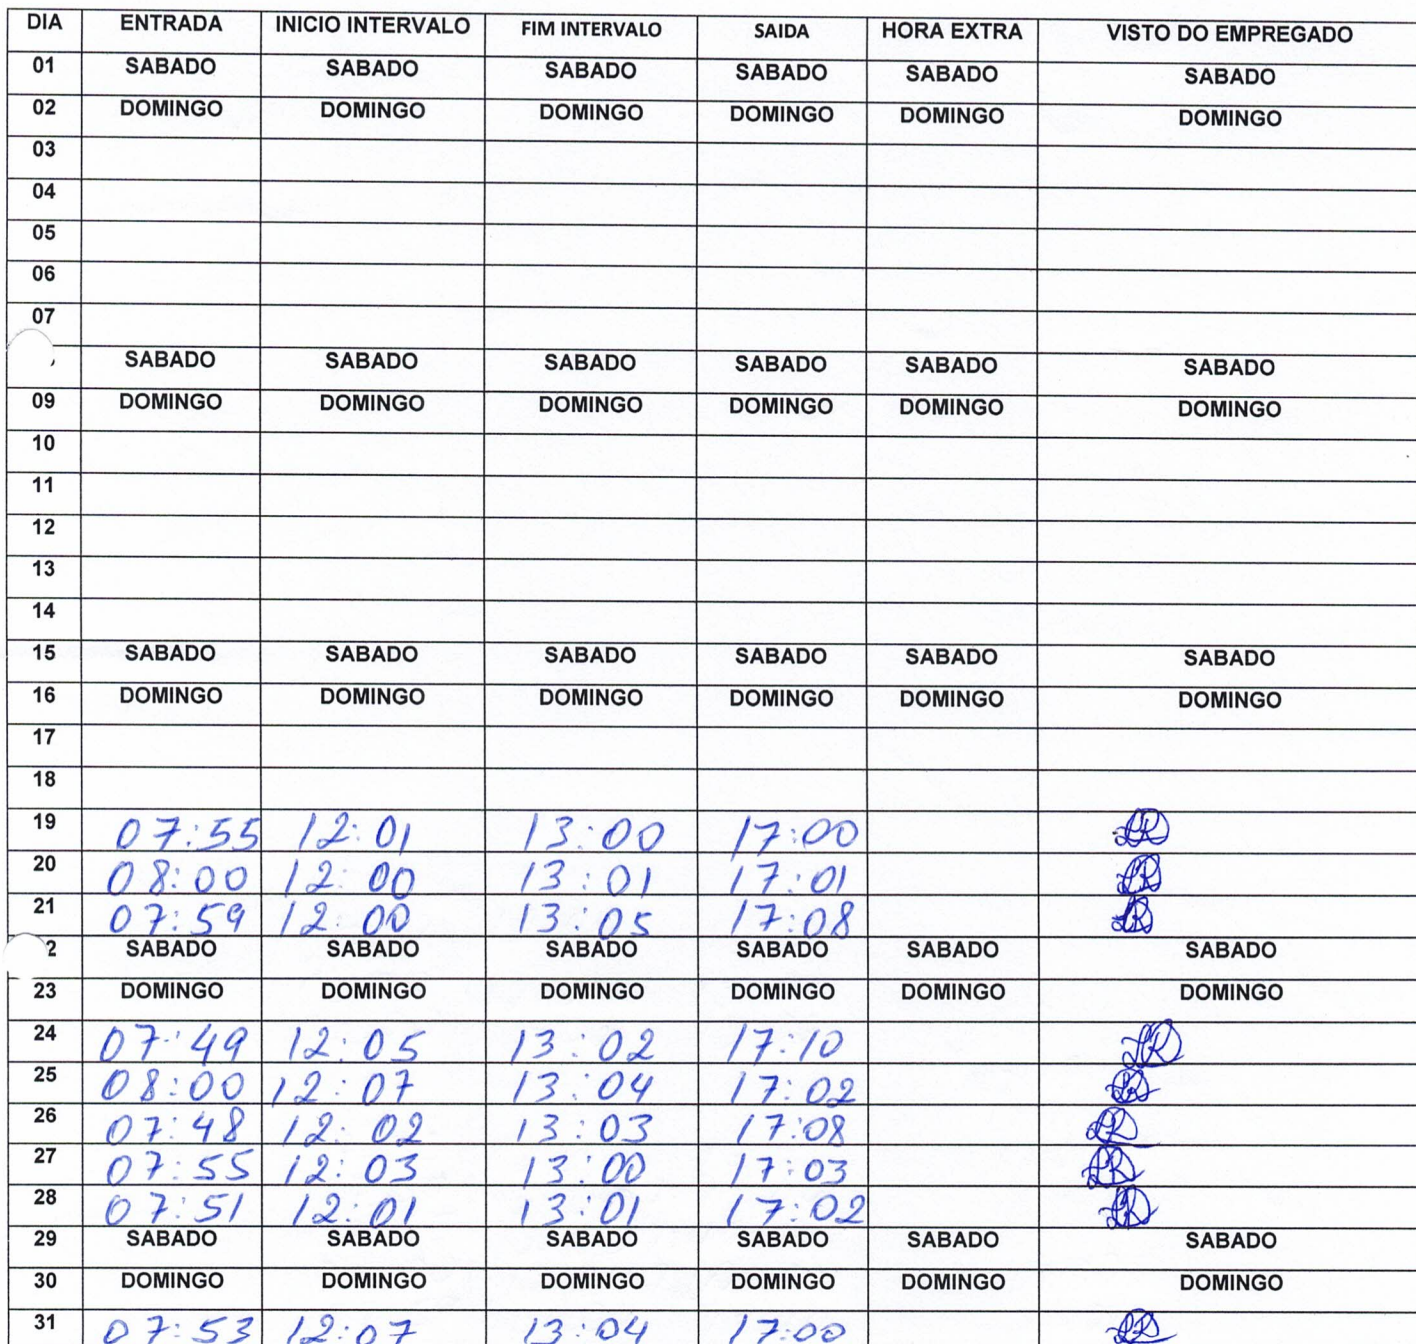 DIA ENTRADA INICIO INTERVALO FIM INTERVALO SAIDA HORA EXTRA VISTO DO EMPREGADO
01 SABADO SABADO SABADO SABADO SABADO SABADO
02 DOMINGO DOMINGO DOMINGO DOMINGO DOMINGO DOMINGO
03
04
05
06
07
SABADO SABADO SABADO SABADO SABADO SABADO
09 DOMINGO DOMINGO DOMINGO DOMINGO DOMINGO DOMINGO
10
11
12
13
14
15 SABADO SABADO SABADO SABADO SABADO SABADO
16 DOMINGO DOMINGO DOMINGO DOMINGO DOMINGO DOMINGO
17
18
19 07:55 12:01 13:00 17:00
20 08:00 12:00 13:01 17:01
21 07:59 12:00 13:05 17:08
2 SABADO SABADO SABADO SABADO SABADO SABADO
23 DOMINGO DOMINGO DOMINGO DOMINGO DOMINGO DOMINGO
24 07:49 12:05 13:02 17:10
25 08:00 12:07 13:04 17:02
26 07:48 12:02 13:03 17:08
27 07:55 12:03 13:00 17:03
28 07:51 12:01 13:01 17:02
29 SABADO SABADO SABADO SABADO SABADO SABADO
30 DOMINGO DOMINGO DOMINGO DOMINGO DOMINGO DOMINGO
31 07:53 12:07 13:04 17:00